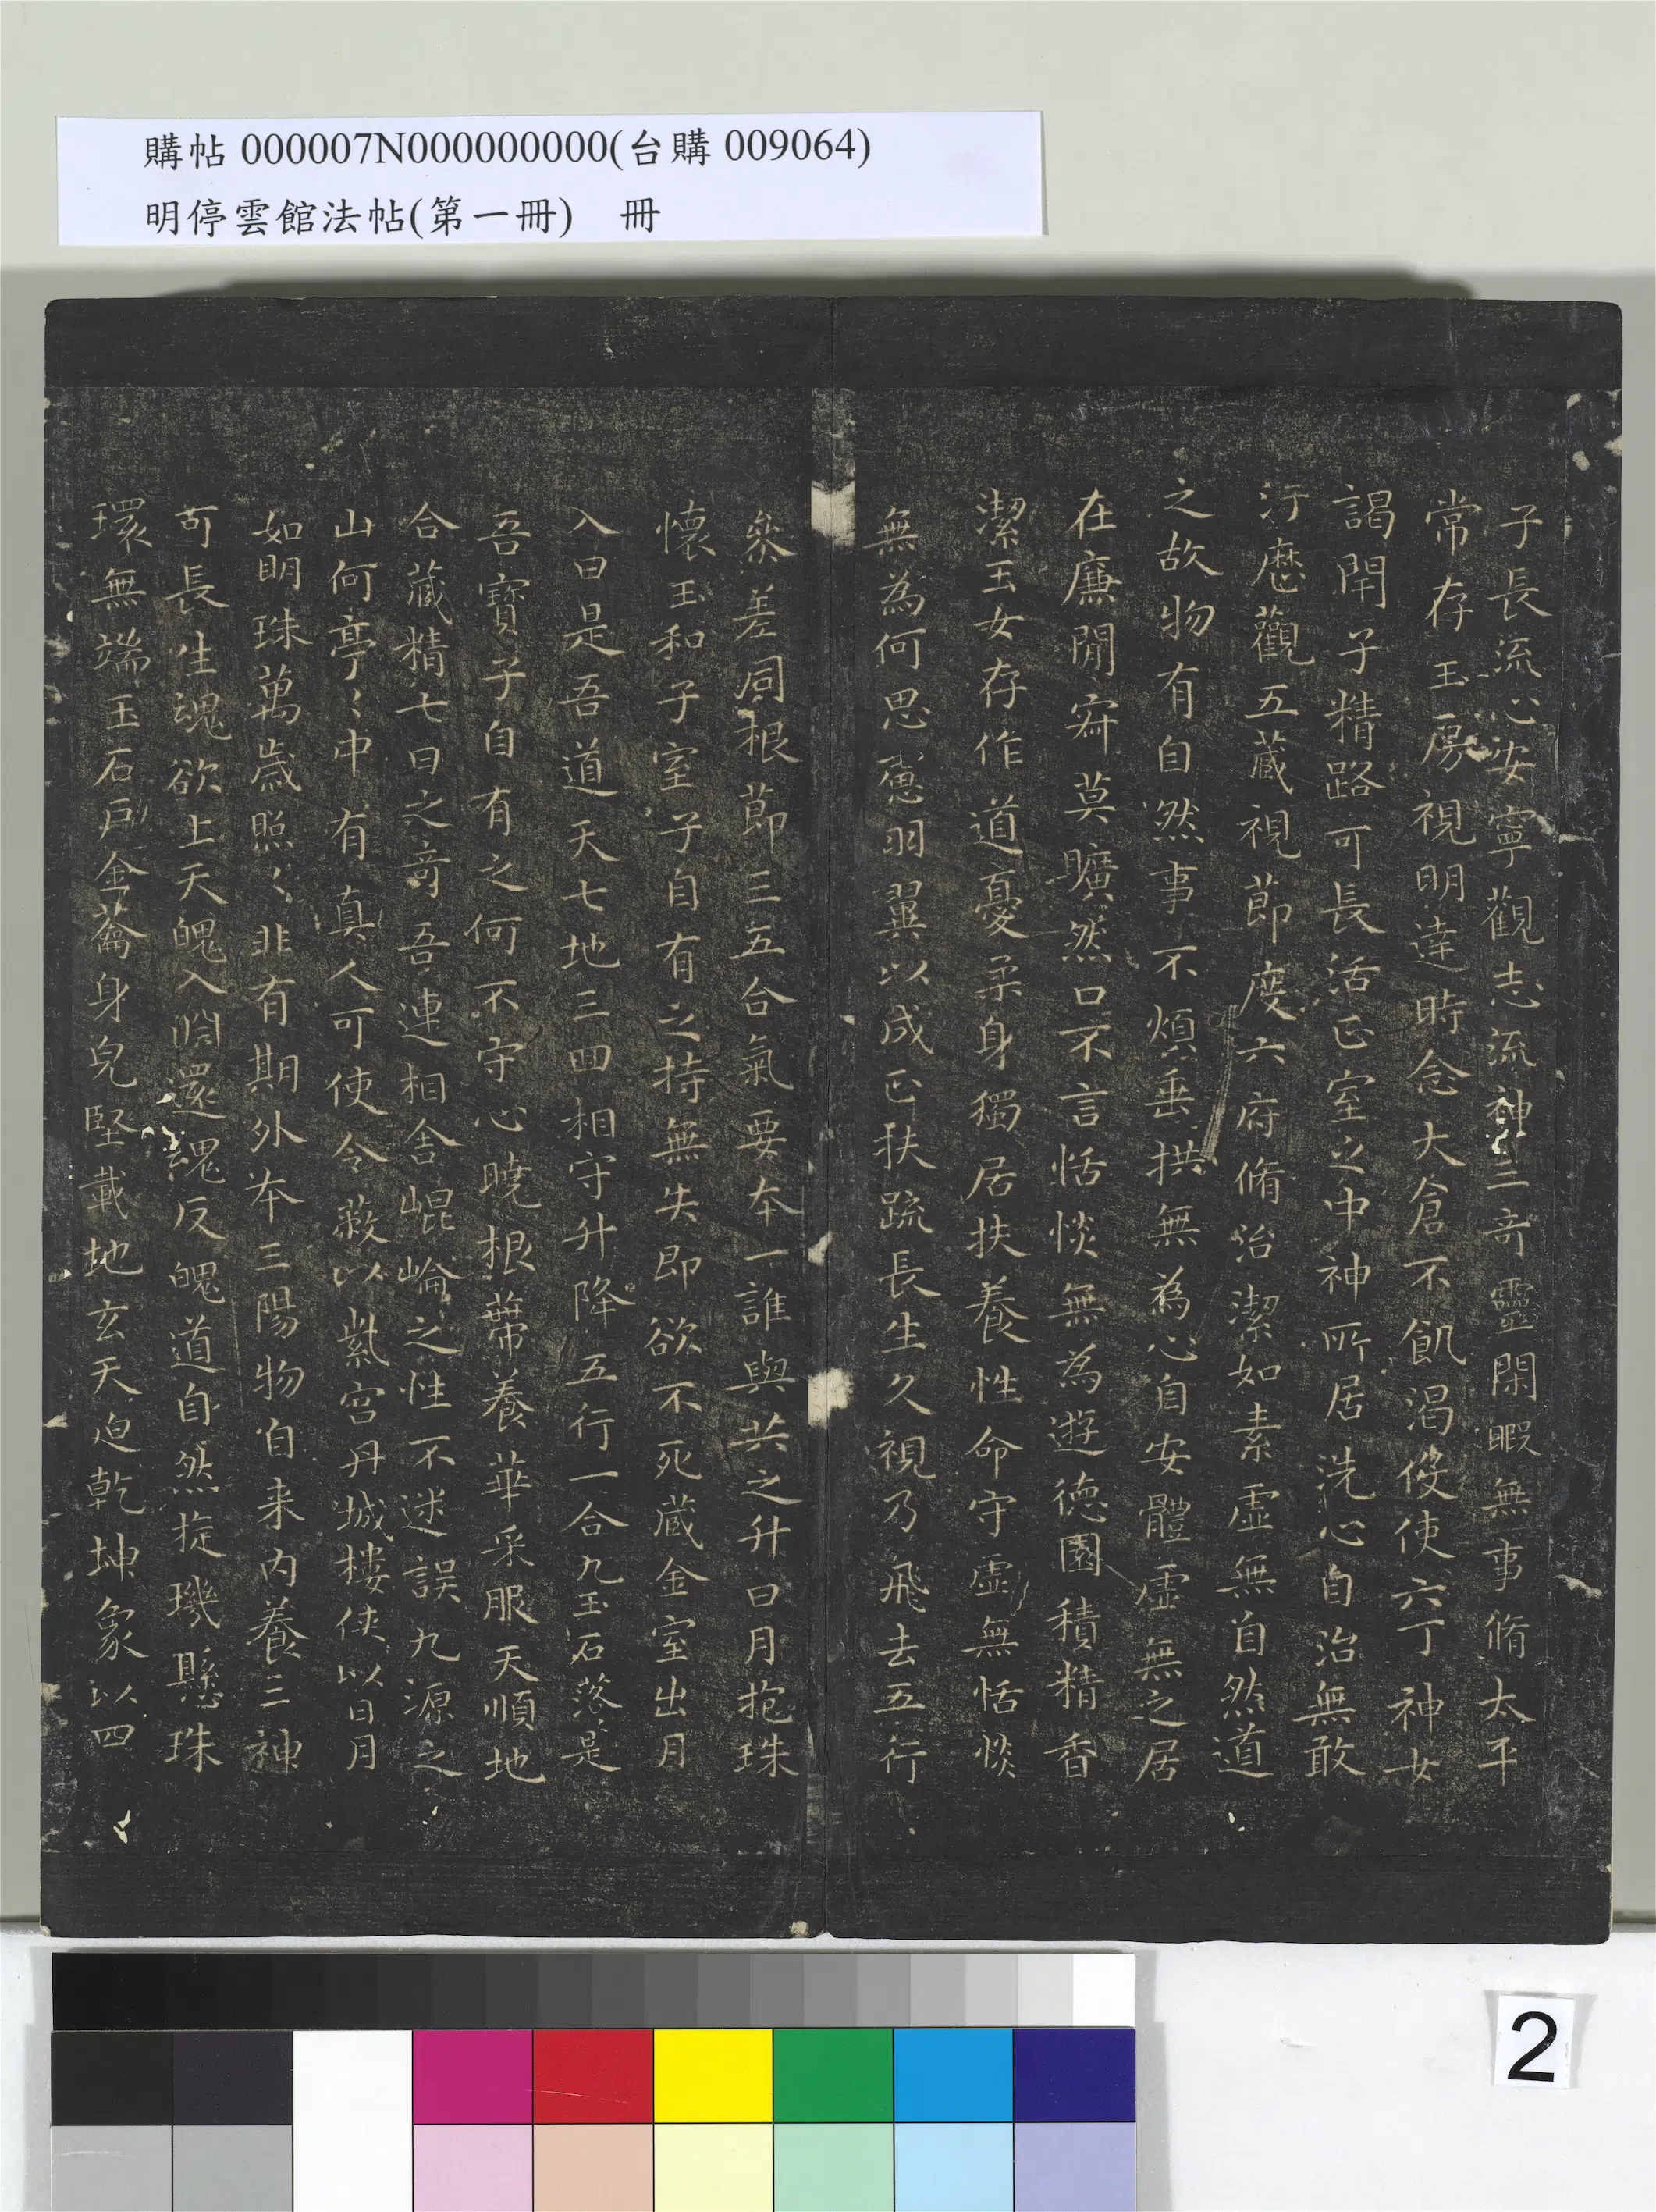 購帖 000007N000000000(台購 009064)
明停雲館法帖(第一冊) 冊
子長流心安寧觀志流神三奇靈閑暇無事脩太平
常存玉房視明達時念大倉不飢渴伇使六丁神女
謁閉子精路可長活正室之中神所居洗心自治無敢
汙歷觀五藏視節度六府脩治潔如素虛無自然道
之故物有自然事不煩垂拱無為心自安體虛無之居
在廉閒寂莫曠然口不言恬惔無為遊德園積精香
潔玉女存作道憂柔身獨居扶養性命守虛無恬惔
無為何思慮羽翼以成正扶疏長生久視乃飛去五行
叅差同根節三五合氣要本一誰與共之升日月抱珠
懷玉和子室子自有之持無失即欲不死藏金室出月
入日是吾道天七地三回相守升降五行一合九玉石落是
吾寶子自有之何不守心曉根蔕養華采服天順地
合藏精七日之奇吾連相舍崐崘之性不迷誤九源之
山何亭〻中有真人可使令蔽以紫宮丹城樓俠以日月
如明珠萬歲照〻非有期外本三陽物自来内養三神
可長生魂欲上天魄入淵還魂反魄道自然旋璣懸珠
環無端玉石戶金蘥身皃堅載地玄天迫乾坤象以四
2